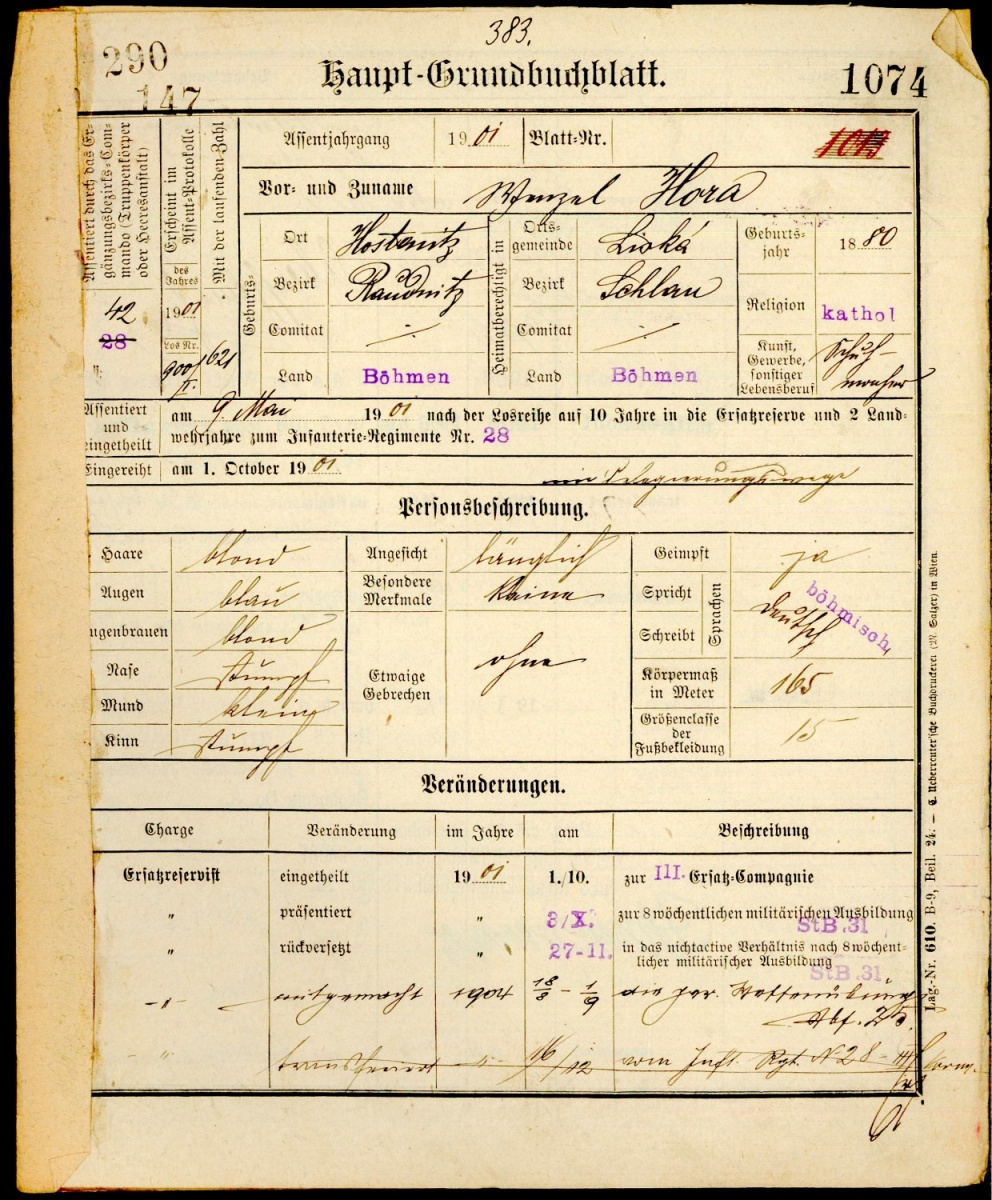 383.
290
147
Haupt-Grundbuchblatt.
1074
Assentiert durch das Ergänzungsbezirks-Commando (Truppenkörper oder Heeresanstalt)
42
28
Erscheint im Assent-Protokolle
des Jahres
1901
Los Nr.
900/II.
Mit der laufenden Zahl
1621
Assentjahrgang 1901 Blatt-Nr. 1013
Vor- und Zuname Wenzel Hora
Geburts-
Ort Hostenitz
Bezirk Raudnitz
Comitat ./.
Land Böhmen
Heimatberechtigt in
Orts-
gemeinde Liská
Bezirk Schlan
Comitat ./.
Land Böhmen
Geburts-
jahr 1880
Religion kathol
Kunst,
Gewerbe,
sonstiger
Lebensberuf
Schuh-
macher
Assentiert
und
eingetheilt
am 9. Mai 1901 nach der Losreihe auf 10 Jahre in die Ersatzreserve und 2 Land-
wehrjahre zum Infanterie-Regimente Nr. 28
Eingereiht am 1. October 1901
im Delegierungswege
Personsbeschreibung.
Haare blond
Augen blau
ugenbrauen blond
Nase stumpf
Mund klein
Kinn stumpf
Angesicht länglich
Besondere
Merkmale Keine
Etwaige
Gebrechen ohne
Geimpft ja
Spricht
Schreibt
Sprachen
böhmisch,
deutsch
Körpermaß
in Meter 165
Größenclasse
der
Fußbekleidung 15
Veränderungen.
Charge Veränderung im Jahre am Beschreibung
Ersatzreservist eingetheilt 1901 1./10. zur III. Ersatz-Compagnie
" präsentiert " 3/X. zur 8 wöchentlichen militärischen Ausbildung
StB.31
" rückversetzt " 27-11. in das nichtactive Verhältnis nach 8 wöchent-
licher militärischer Ausbildung
StB.31
-"- mitgemacht 1904 18/8 - 1/9 die per. Waffenübung
Abf. 25.
" transferirt -"- 16/12 vom Inft. Rgt. N 28
Lag.-Nr. 610. B-9, Beil. 24. — C. Ueberreuter'sche Buchdruckerei (M. Salzer) in Wien.